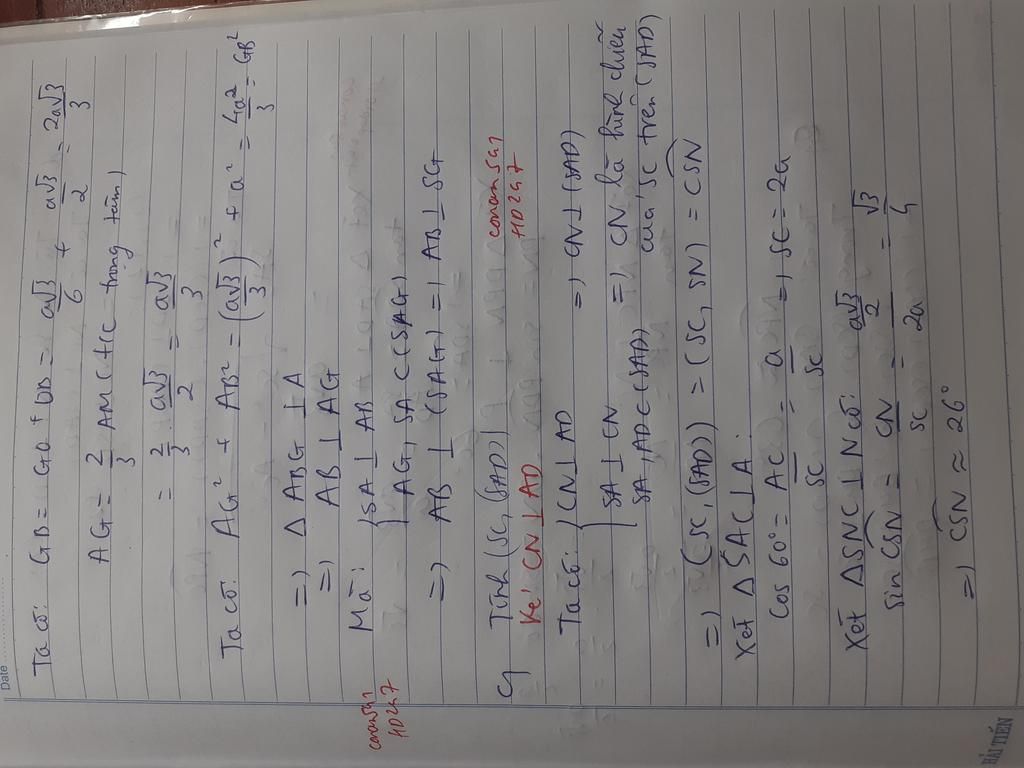 Date
Ta có: GB = GO + OB = a√3/6 + a√3/2 = 2a√3/3
AG = 2/3 AM (t/c trọng tâm)
= 2/3 . a√3/2 = a√3/3
Ta có: AG² + AB² = (a√3/3)² + a² = 4a²/3 = GB²
=) Δ ABG ⊥ A
=) AB ⊥ AG
Mà: { SA ⊥ AB
AG, SA ⊂ (SAG)
=) AB ⊥ (SAG) =) AB ⊥ SG
conansai
HD247
c, Tính (SC, (SAD))
conansai
HD247
Kẻ CN ⊥ AD
Ta có: { CN ⊥ AD =) CN ⊥ (SAD)
SA ⊥ CN =) CN là hình chiếu
SA, AD ⊂ (SAD) của SC trên (SAD)
=) (SC, (SAD)) = (SC, SN) = CSN
Xét Δ SAC ⊥ A:
Cos 60° = AC/SC = a/SC =) SC = 2a
Xét Δ SNC ⊥ N có:
Sin CSN = CN/SC = (a√3/2)/2a = √3/4
=) CSN ≈ 26°
HẢI TIẾN